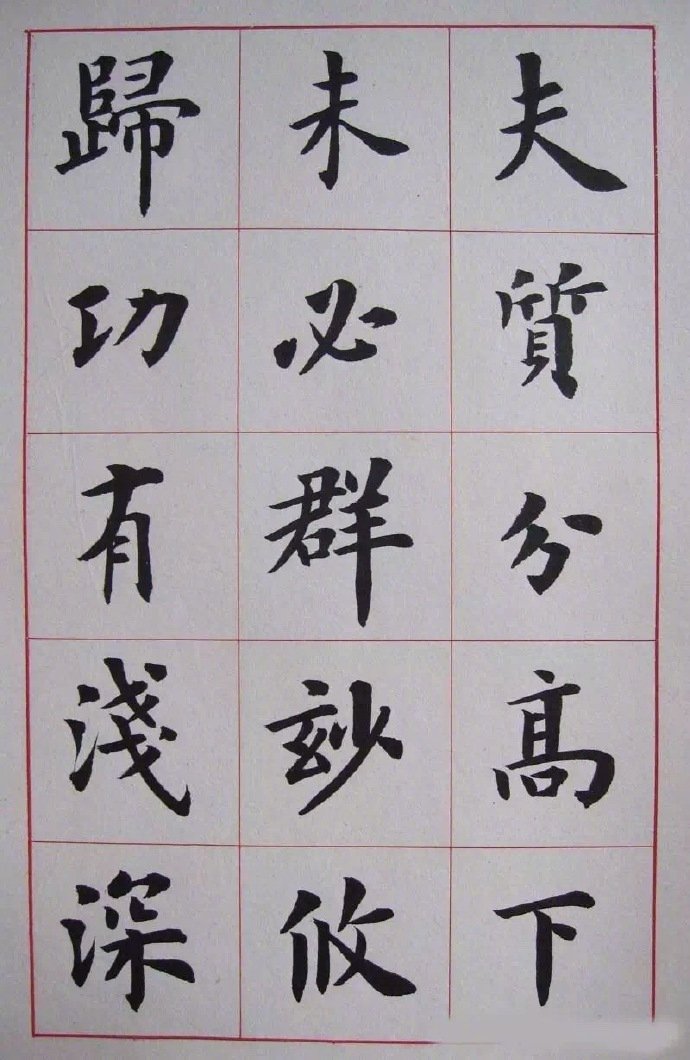 夫質分高下
未必群玅攸
歸功有淺深